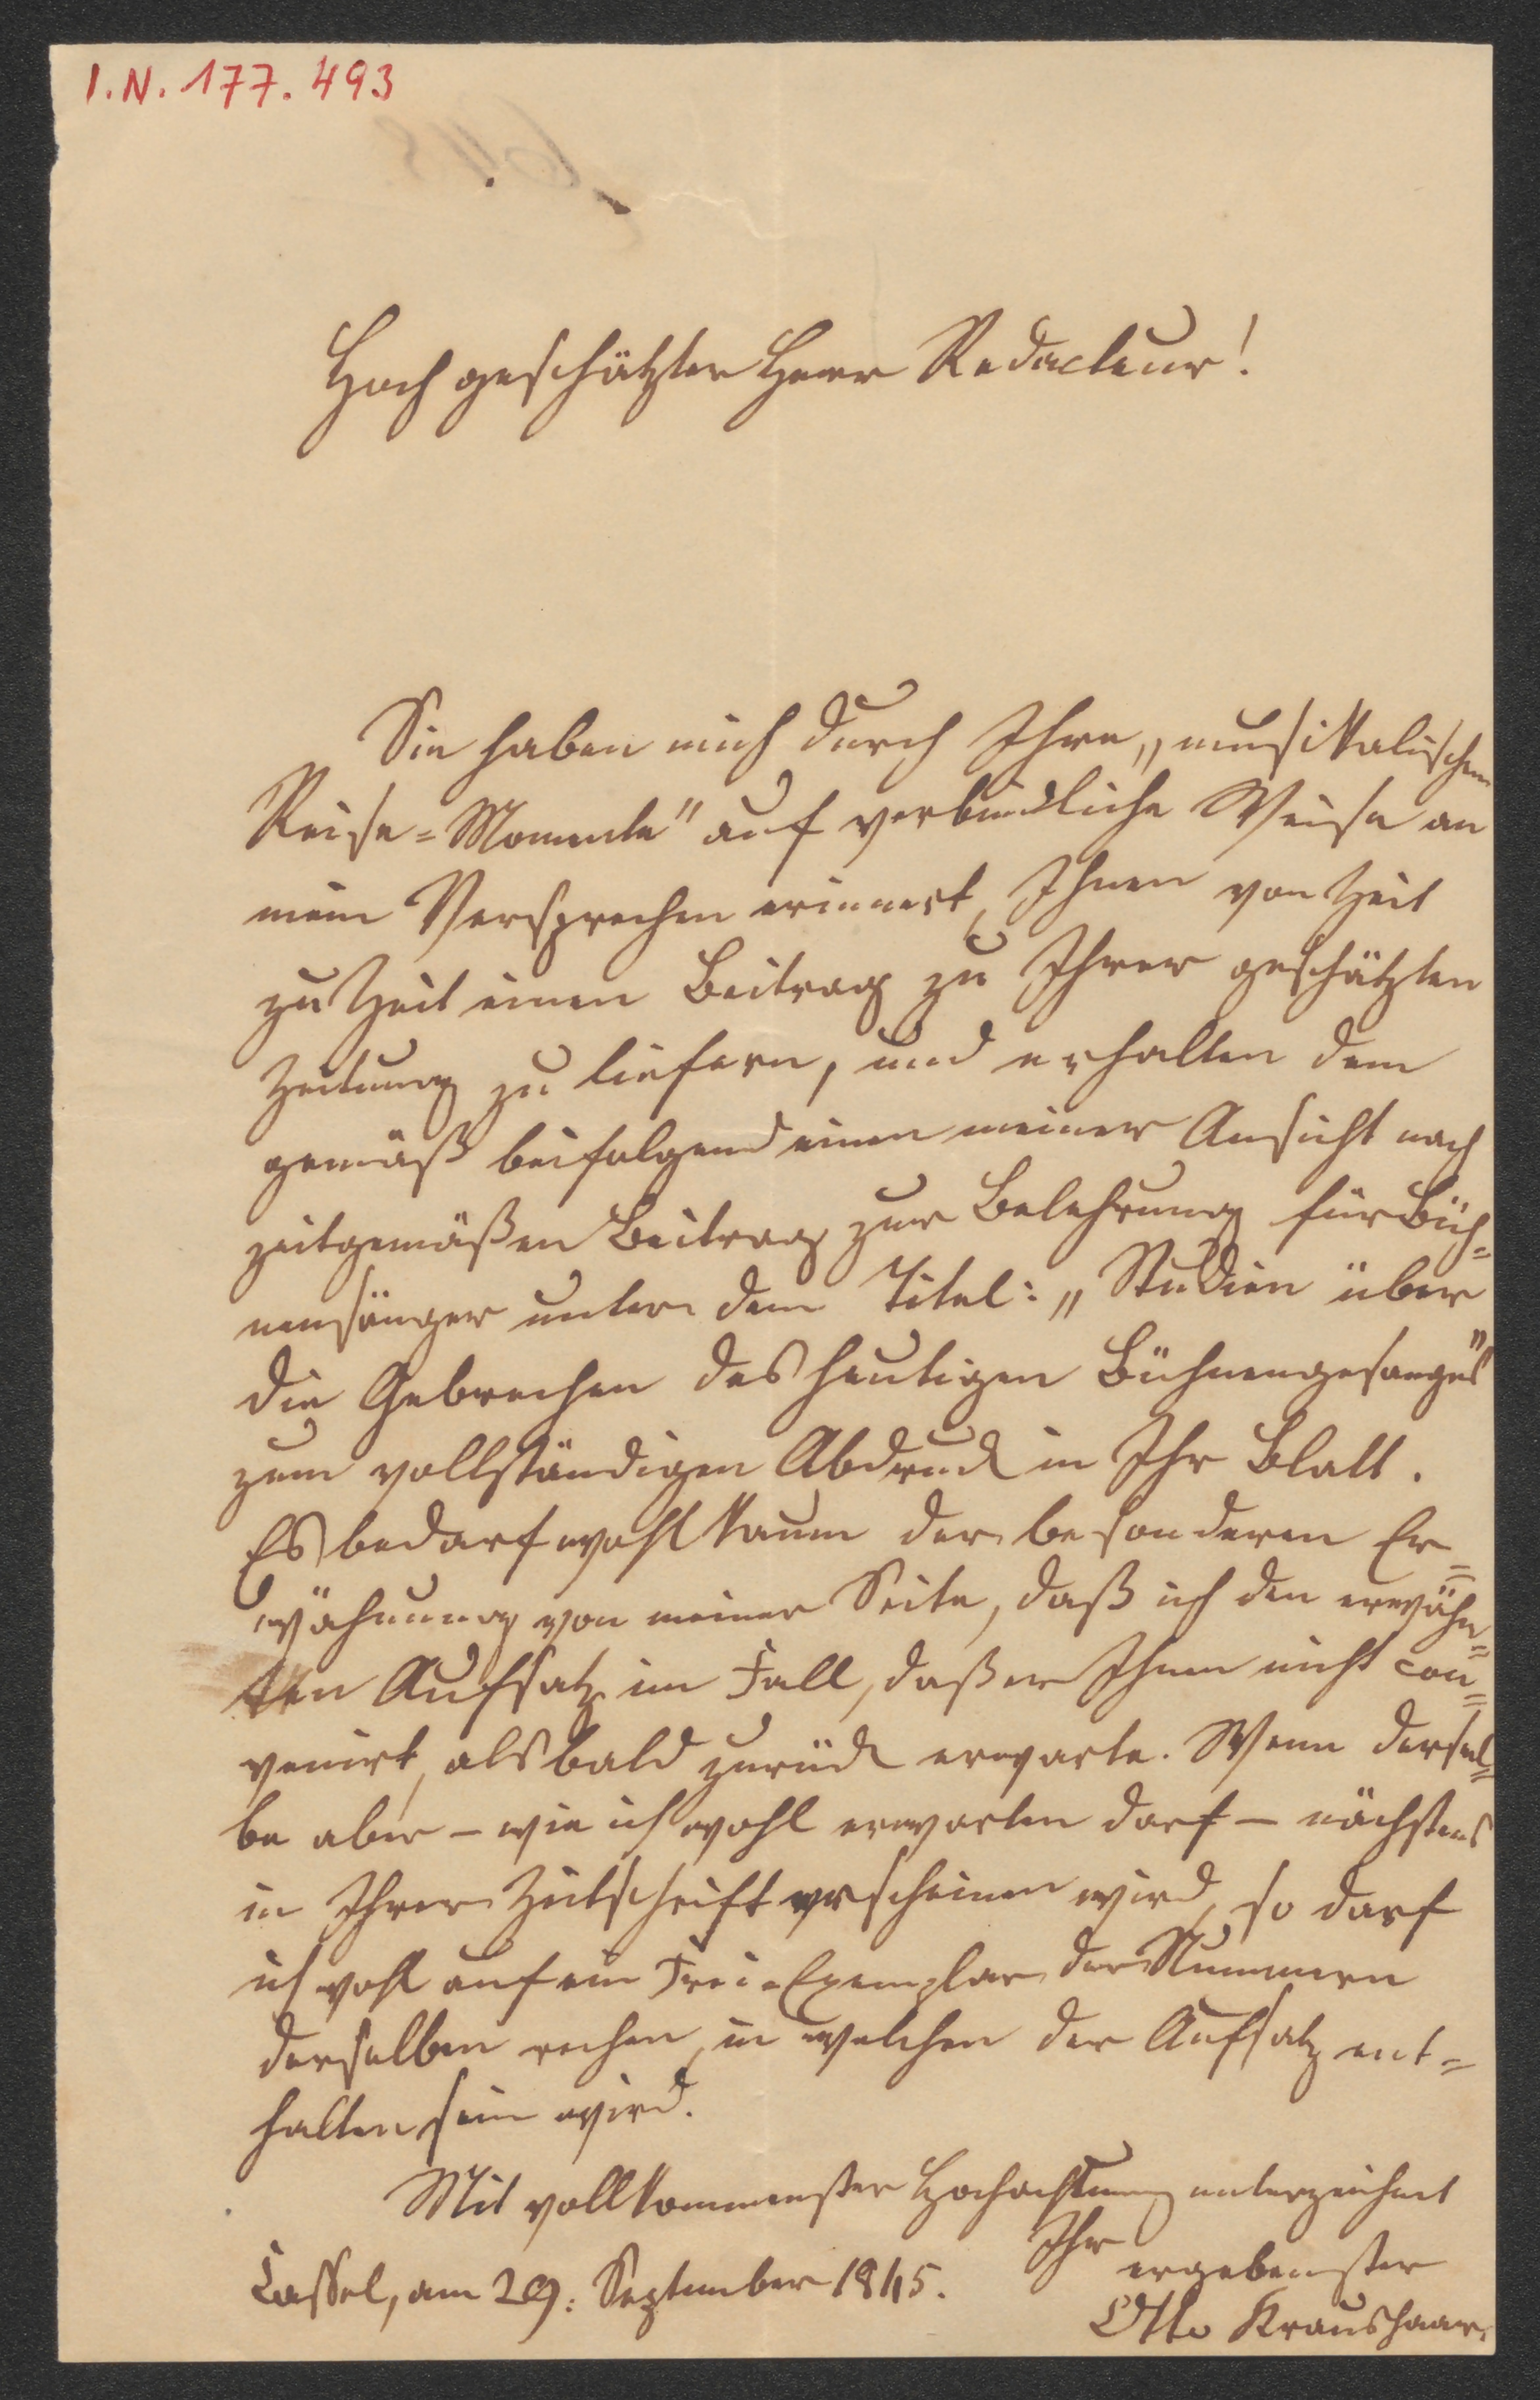 I.N. 177.493
Hochgeschätzter Herr Redacteur!
Sie haben mich durch Ihre „musikalischen
Reise=Momente" auf verbindliche Weise an
mein Versprechen erinnert, Ihnen von Zeit
zu Zeit einen Beitrag zu Ihrer geschätzten
Zeitung zu liefern, und erhalten dem
gemäß beifolgend einen meiner Ansicht nach
zeitgemäßen Beitrag zur Belehrung für Büh=
nensänger unter dem Titel: „Studien über
die Gebrechen des heutigen Bühnengesanges"
zum vollständigen Abdruck in Ihr Blatt.
Es bedarf wohl kaum der besonderen Er=
wähnung von meiner Seite, daß ich den erwähn=
ten Aufsatz im Fall, daß er Ihnen nicht con=
venirt, alsbald zurück erwarte. Wenn dersel=
be aber – wie ich wohl erwarten darf – nächstens
in Ihrer Zeitschrift erscheinen wird, so darf
ich wohl auf ein Frei=Exemplar der Nummern
derselben rechen, in welchen der Aufsatz ent=
halten sein wird.
Mit vollkommenster Hochachtung unterzeichnet
Ihr
ergebenster
Cassel, am 29. September 1845.
Otto Kraushaar.